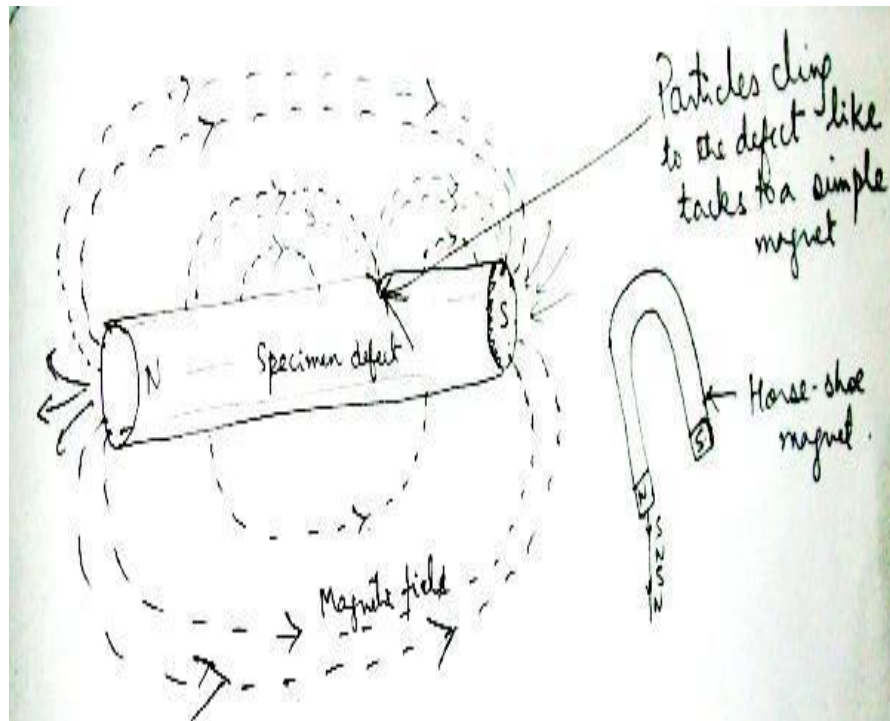 Particles cling
to the defect like
tacks to a simple
magnet
N
S
Specimen defect
Horse-shoe
magnet.
S
N
S
N
S
N
Magnetic field